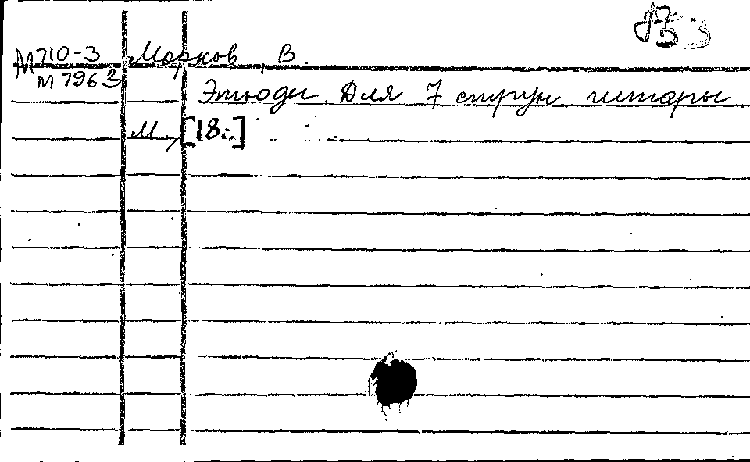 М710-3 Морков, В.
М 796 3
Этюды. Для 7 струн гитары
М., [18..]